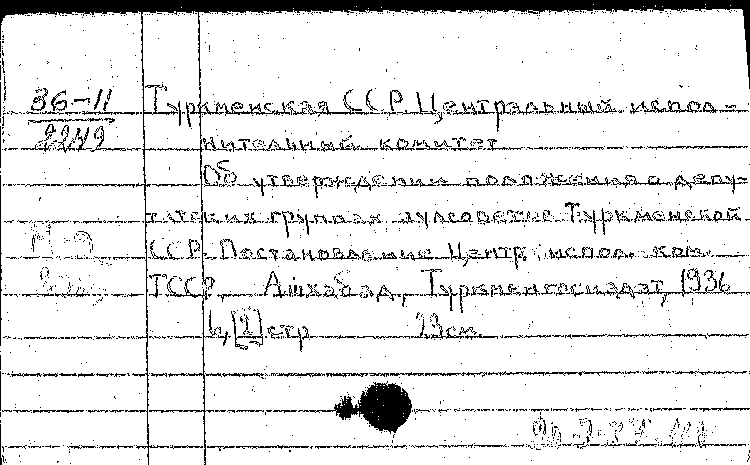 36-11
2249
Туркменская ССР. Центральный испол-
нительный комитет
Об утверждении положения о депу-
татских группах аулсоветов Туркменской
ССР. Постановление Центр. испол. ком.
ТССР. Ашхабад, Туркменгосиздат, 1936
4, [2] стр 23 см.